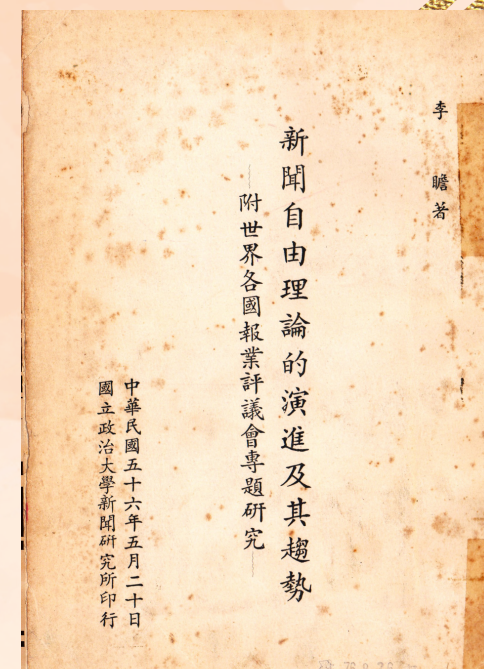 李瞻著
新聞自由理論的演進及其趨勢
—附世界各國報業評議會專題研究—
中華民國五十六年五月二十日
國立政治大學新聞研究所印行